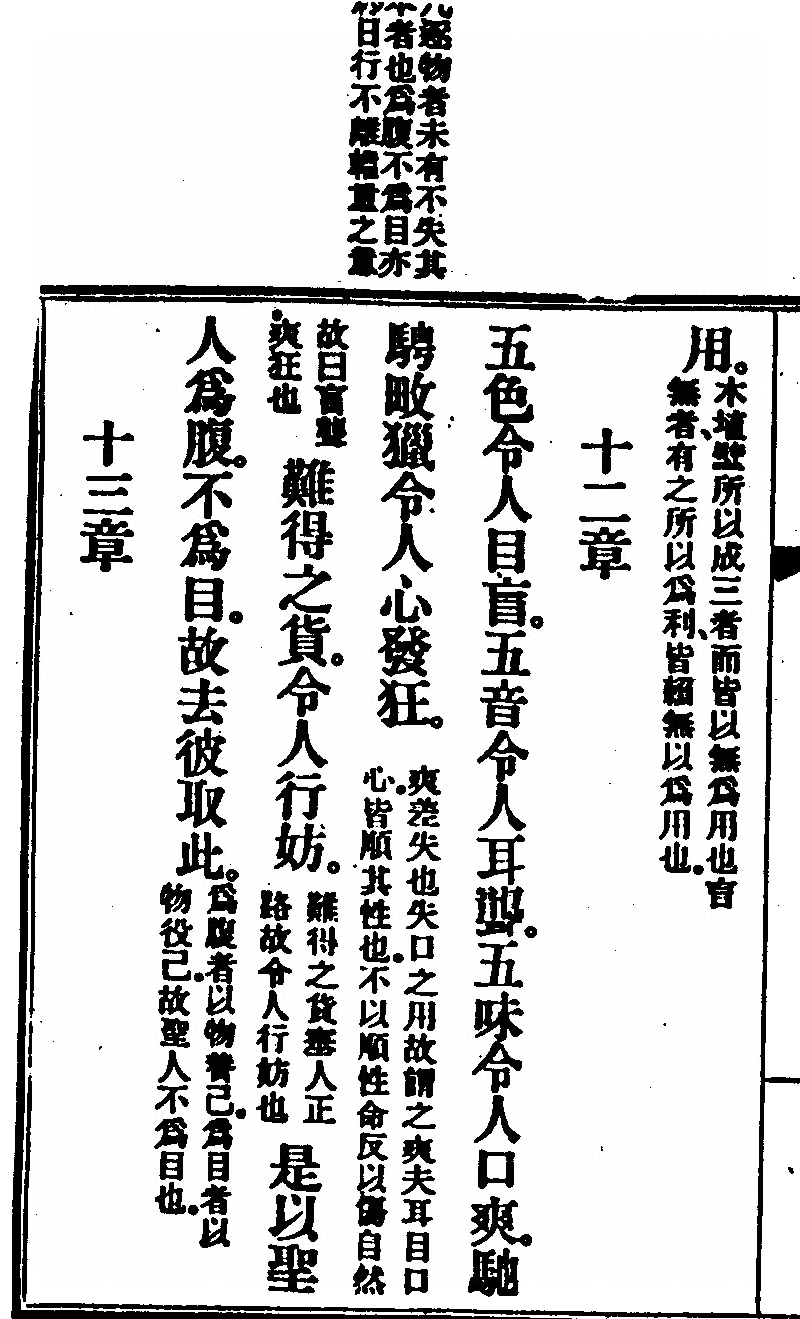 逐物者未有不失其
者也爲腹不爲目亦
日行不離輜重之意
用。
木埴壁所以成三者而皆以無爲用也言
無者、有之所以爲利、皆賴無以爲用也。
十二章
五色令人目盲。五音令人耳聾。五味令人口爽。馳
騁畋獵令人心發狂。
爽差失也失口之用故謂之爽夫耳目口
心。皆順其性也。不以順性命反以傷自然
故曰盲聾
爽狂也
難得之貨。令人行妨。
難得之貨塞人正
路故令人行妨也
是以聖
人爲腹。不爲目。故去彼取此。
爲腹者以物養己。爲目者以
物役己。故聖人不爲目也。
十三章